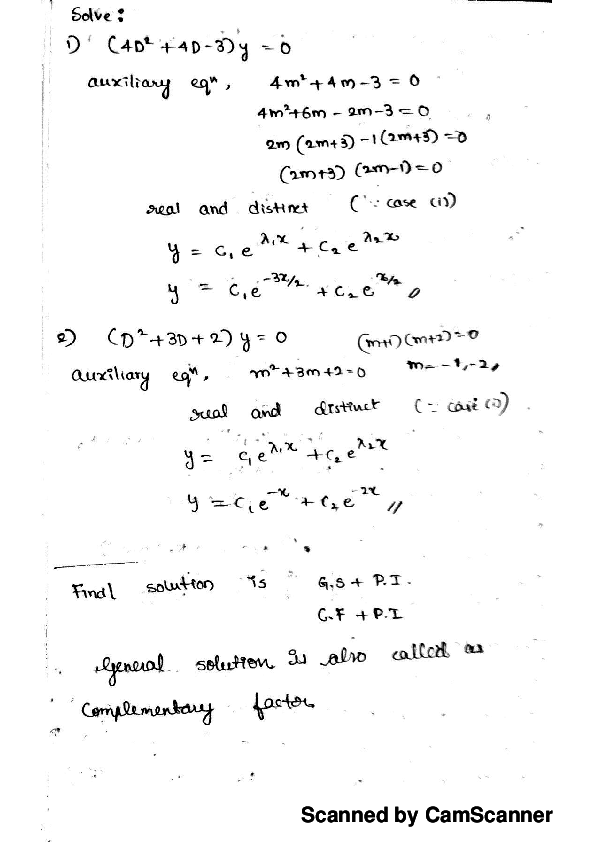 Solve :
1) (4D² + 4D - 3)y = 0
auxiliary eqⁿ, 4m² + 4m - 3 = 0
4m² + 6m - 2m - 3 = 0
2m (2m+3) - 1(2m+3) = 0
(2m+3) (2m-1) = 0
real and distinct (∵ case (i))
y = C₁ e^λ₁x + C₂ e^λ₂x
y = C₁e^-3x/2 + C₂e^x/2 //
2) (D² + 3D + 2) y = 0 (m+1)(m+2) = 0
auxiliary eqⁿ, m² + 3m + 2 = 0 m = -1, -2 //
real and distinct (∵ case (i))
y = C₁e^λ₁x + C₂e^λ₂x
y = C₁e^-x + C₂e^-2x //
Final solution is G.S + P.I.
C.F + P.I
General solution is also called as
Complementary factor
Scanned by CamScanner